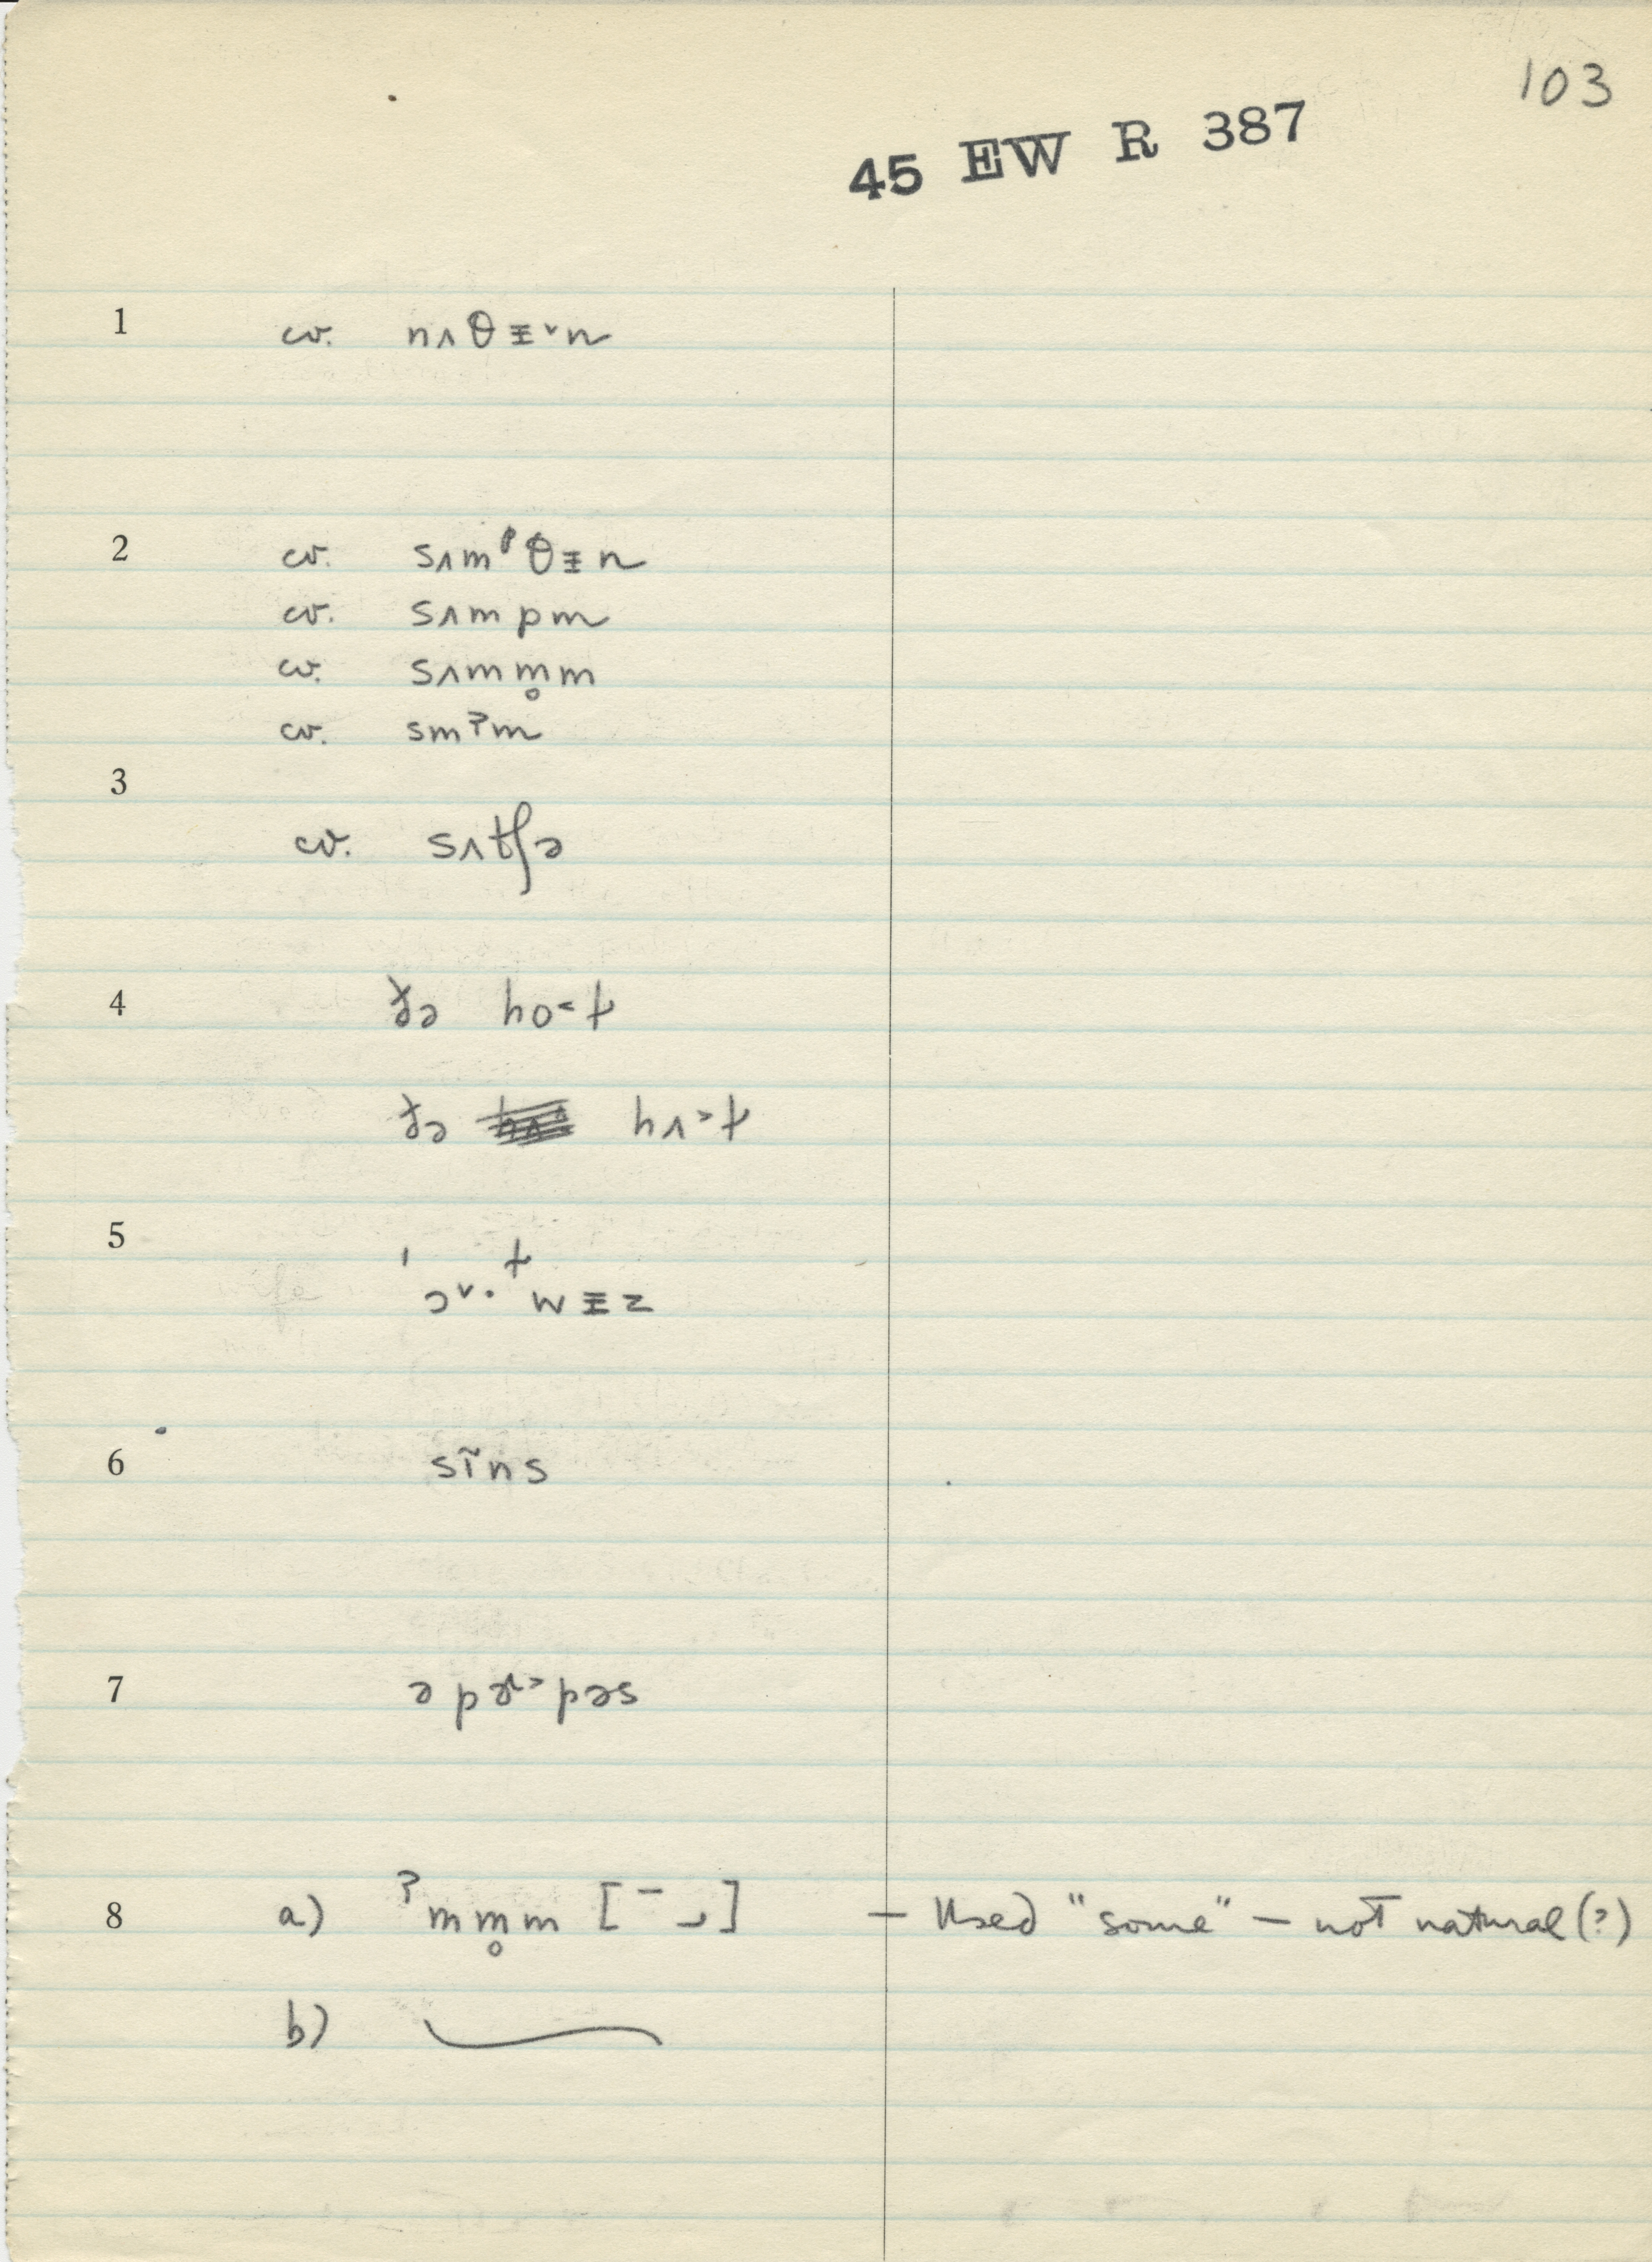 103
45 EW R 387
1 cv. nʌθɨ˅n
2 cv. sʌmᵖθɨn
cv. sʌmpm
cv. sʌmm̥m
cv. smˀm
3 cv. sʌtʃə
4 ðə ho˂t
ðə hʌ˃t
5 ' t
ɔ˅· wɨz
6 sĩns
7 ə pɚ˃pəs
8 a) ˀmm̥m [ ] — Used "some" — not natural (?)
b)